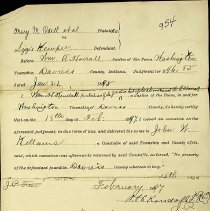 954
Mary M. Hall et al Plaintiff
Lizzie Hamper Defendant.
Before Wm A Howall Justice of the Peace Washington
Township, Daviess County, Indiana. Judgment for $96.15
Jan. 21 1895
Justice of the Peace, in and for
Washington Township Daviess County, do hereby certify
that on the 19th day of Feb 1897 I issued an execution on the
aforesaid judgment, in due form of law, and delivered the same to John W.
Kellams a Constable of said Township and County afore-
said, which execution was afterwards returned by said Constable, indorsed, "No property
of the defendant found in Daviess County whereon to levy."
February 1897